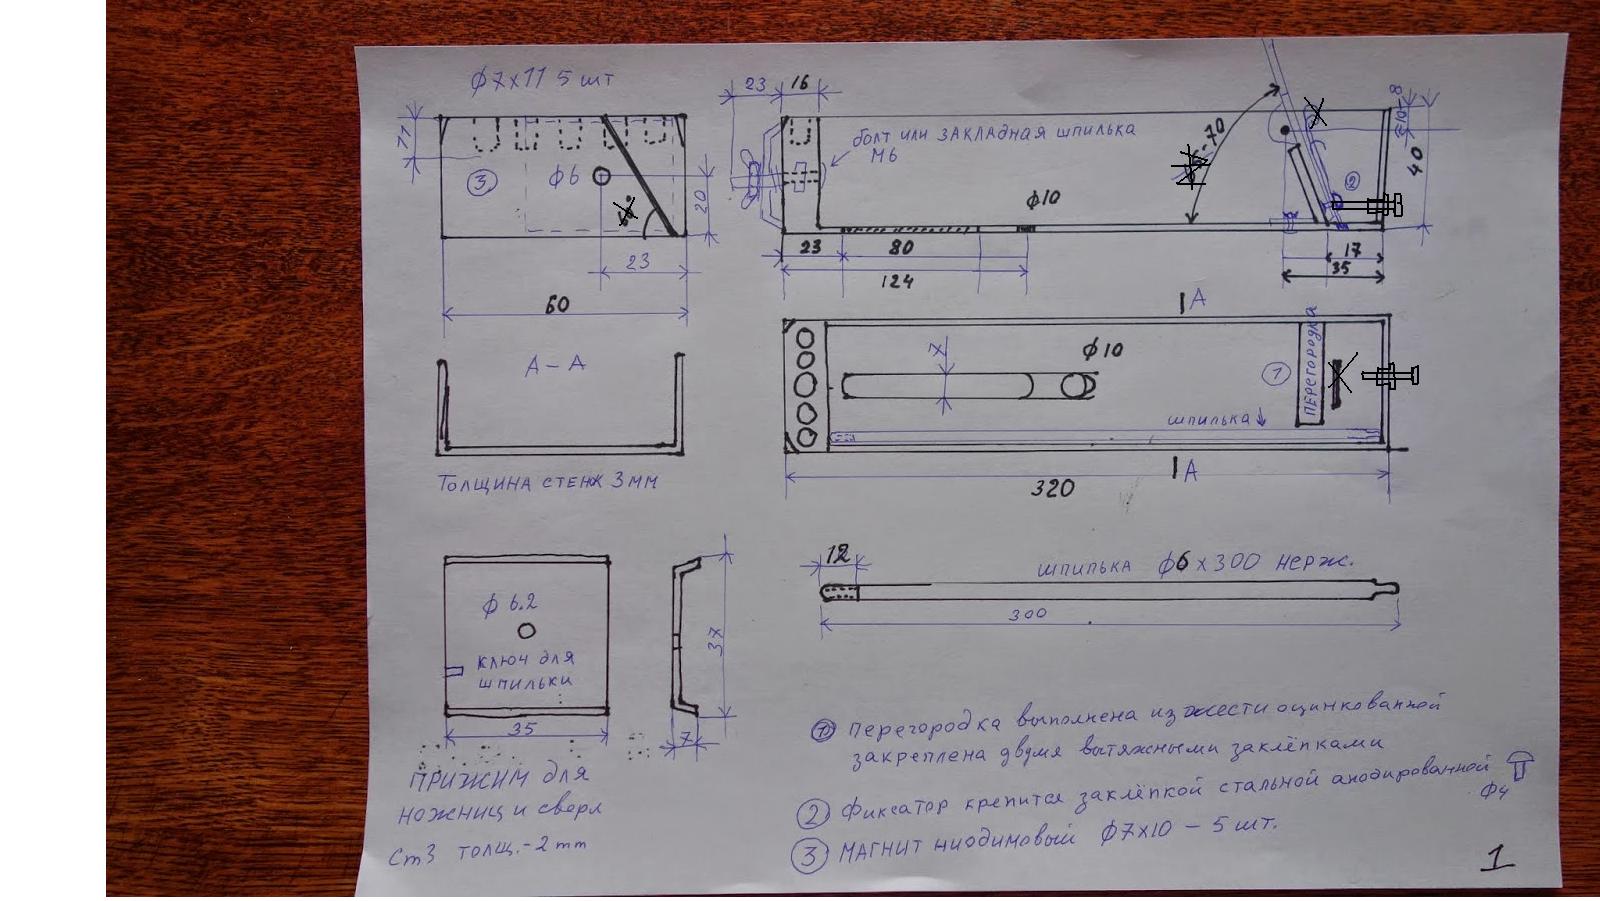 Ф7х11 5 шт
11
3
Ф6
20
23
60
23
16
болт или закладная шпилька
М6
-70
10-8
40
2
Ф10
23
80
124
17
35
А-А
Толщина стенок 3мм
А
7
Ф10
1
перегородка
шпилька
А
320
Ф 6.2
ключ для
шпильки
35
37
7
12
шпилька Ф6х300 нерж.
300
Прижим для
ножниц и сверл
Ст3 толщ.-2mm
1 Перегородка выполнена из жести оцинкованной
закреплена двумя вытяжными заклёпками
2 Фиксатор крепится заклёпкой стальной анодированной
Ф4
3 Магнит ниодимовый Ф7х10 - 5 шт.
1